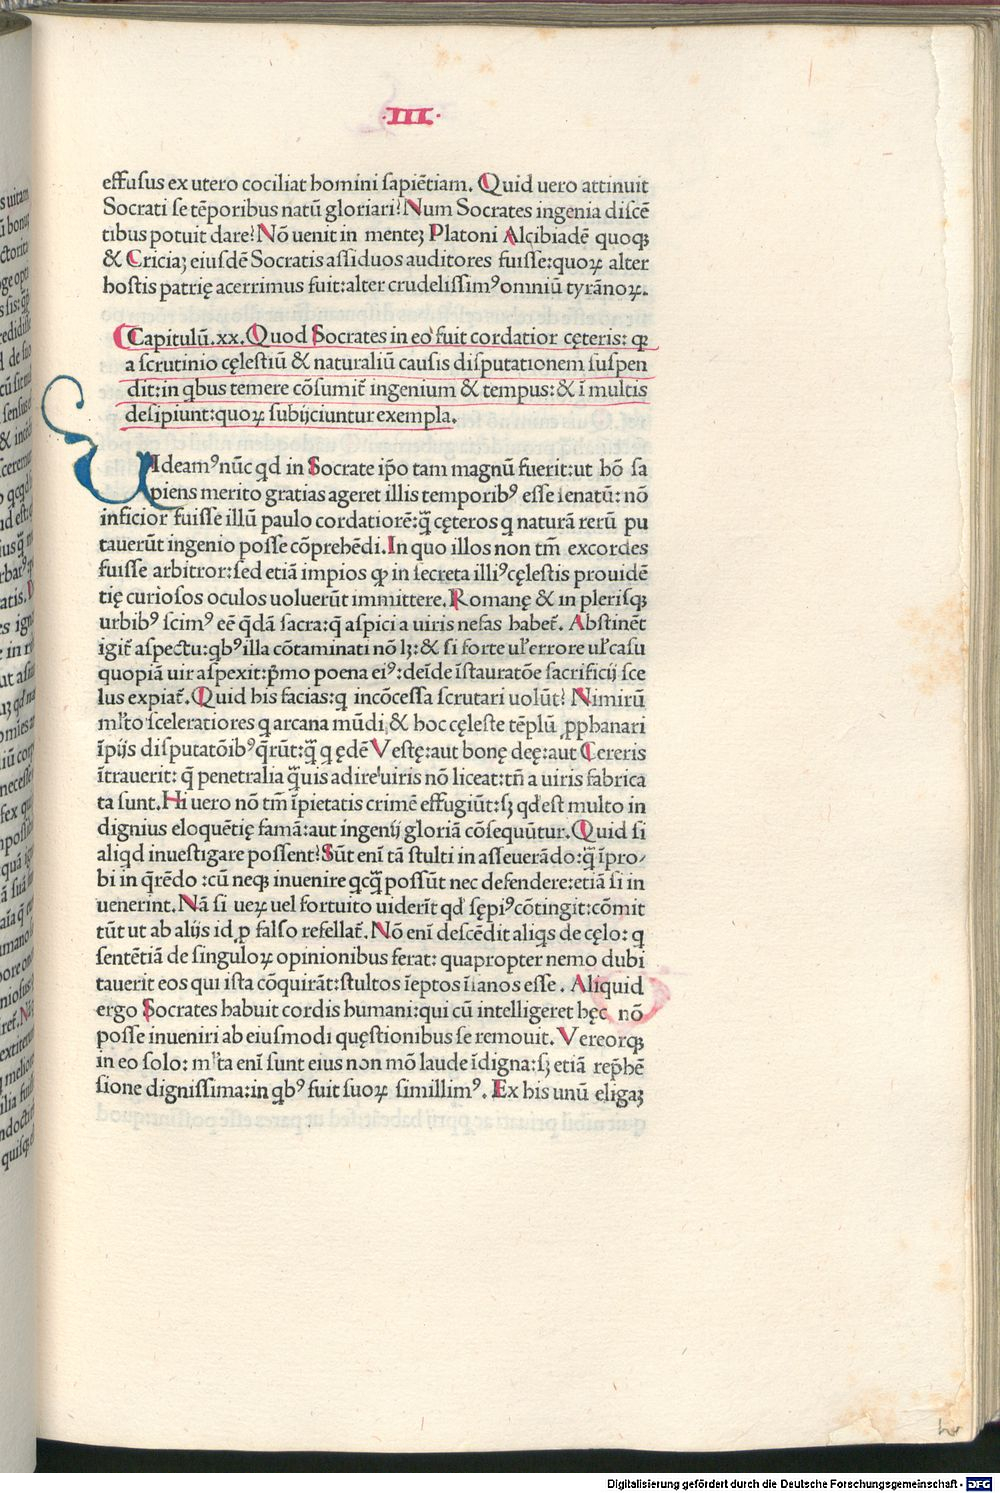 ·III·
effusus ex utero cōciliat homini sapiētiam. Quid uero attinuit
Socrati se tēporibus natū gloriari? Num Socrates ingenia discē
tibus potuit dare? Nō uenit in menteʒ Platoni Alcibiadē quoqʒ
& Criciaʒ eiusdē Socratis assiduos auditores fuisse: quoꝝ alter
hostis patrię acerrimus fuit: alter crudelissimꝰ omniū tyrānoꝝ.
Capitulū. xx. Quod Socrates in eo fuit cordatior cęteris: ꝙ
a scrutinio cęlestiū & naturaliū causis disputationem suspen
dit: in qbus temere cōsumit̄ ingenium & tempus: & ī multis
desipiunt: quoꝝ subijciuntur exempla.
UIdeamꝰ nūc qd in Socrate ip̄o tam magnū fuerit: ut hō sa
piens merito gratias ageret illis temporibꝰ esse se natū: nō
inficior fuisse illū paulo cordatiorē: q̄ꝫ cęteros q naturā rerū pu
tauerūt ingenio posse cōprehēdi. In quo illos non tm̄ excordes
fuisse arbitror: sed etiā impios ꝙ in secreta illiꝰ cęlestis prouidē
tię curiosos oculos uoluerūt immittere. Romanę & in plerisqʒ
urbibꝰ scimꝰ eē q̄dā sacra: q̄ aspici a uiris nefas habet̄. Abstinēt
igit̄ aspectu: qbꝰ illa cōtaminati nō lʒ: & si forte uł errore uł casu
quopiā uir aspexit: p̄mo poena eiꝰ: deīde īstauratōe sacrificij sce
lus expiat̄. Quid his facias: q incōcessa scrutari uolūt? Nimirū
ml̄to sceleratiores q arcana mūdi & hoc cęleste tēplū ꝓphanari
īpijs disputatōibꝰ q̄rūt: q̄ꝫ q ędē Vestę: aut bonę deę: aut Cereris
ītrauerit: q̄ penetralia q̄ꝫuis adire uiris nō liceat: tn̄ a uiris fabrica
ta sunt. Hi uero nō tm̄ īpietatis crimē effugiūt: sʒ qd est multo in
dignius eloquētię famā: aut ingenij gloriā cōsequūtur. Quid si
aliqd inuestigare possent? Sūt enī tā stulti in asseuerādo: q̄ꝫ īpro/
bi in q̄rēdo: cū neqʒ inuenire qcq̄ꝫ possūt nec defendere: etiā si in
uenerint. Nā si ueꝝ uel fortuito uiderīt qd sępiꝰ cōtingit: cōmit
tūt ut ab alijs id ꝓ falso refellat̄. Nō enī descēdit aliqs de cęlo: q
sentētiā de singuloꝝ opinionibus ferat: quapropter nemo dubi
tauerit eos qui ista cōquirāt: stultos īeptos īsanos esse. Aliquid
ergo Socrates habuit cordis humani: qui cū intelligeret hęc nō
posse inueniri ab eiusmodi quęstionibus se remouit. Vereorqʒ
in eo solo: ml̄ta enī sunt eius non mō laude īdigna: sʒ etiā rep̄hē
sione dignissima: in qbꝰ fuit suoꝝ simillimꝰ. Ex his unū eligaʒ
Digitalisierung gefördert durch die Deutsche Forschungsgemeinschaft - DFG